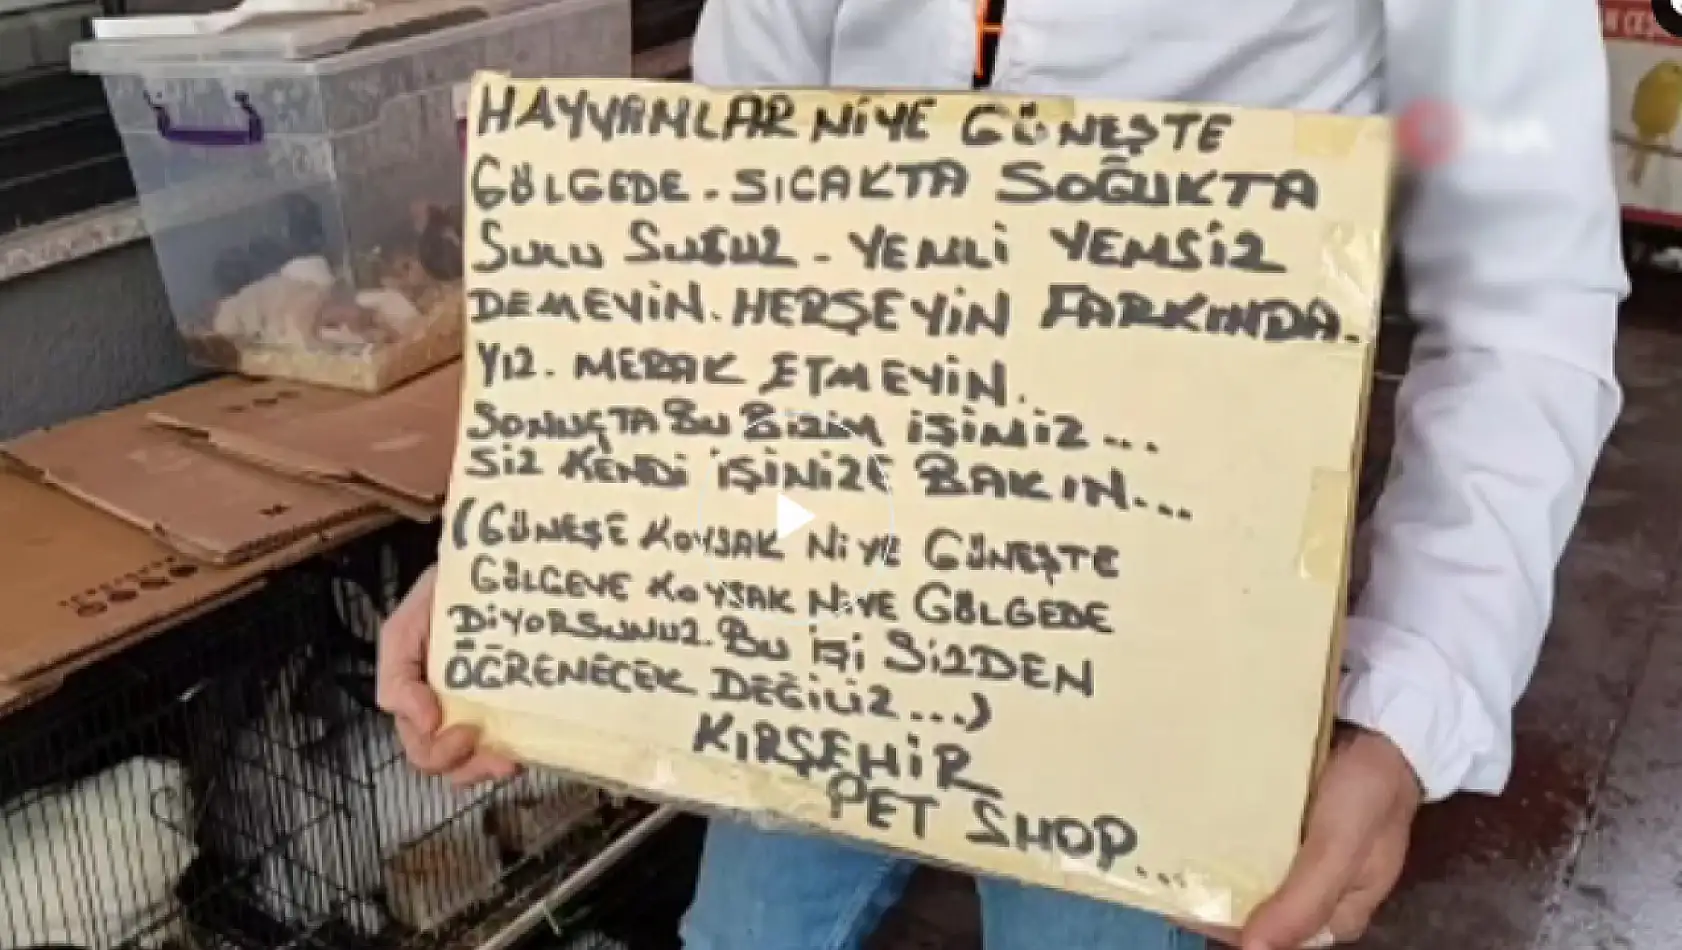 HAYVANLAR NİYE GÜNEŞTE
GÖLGEDE - SICAKTA SOĞUKTA
SULU SUSUZ - YEMLİ YEMSİZ
DEMEYİN. HERŞEYİN FARKINDA.
YIZ. MERAK ETMEYİN.
SONUÇTA BU BİZİM İŞİMİZ...
SİZ KENDİ İŞİNİZE BAKIN...
(GÜNEŞE KOYSAK NİYE GÜNEŞTE
GÖLGEYE KOYSAK NİYE GÖLGEDE
DİYORSUNUZ. BU İŞİ SİZDEN
ÖĞRENECEK DEĞİLİZ...)
KIRŞEHİR
PET SHOP...